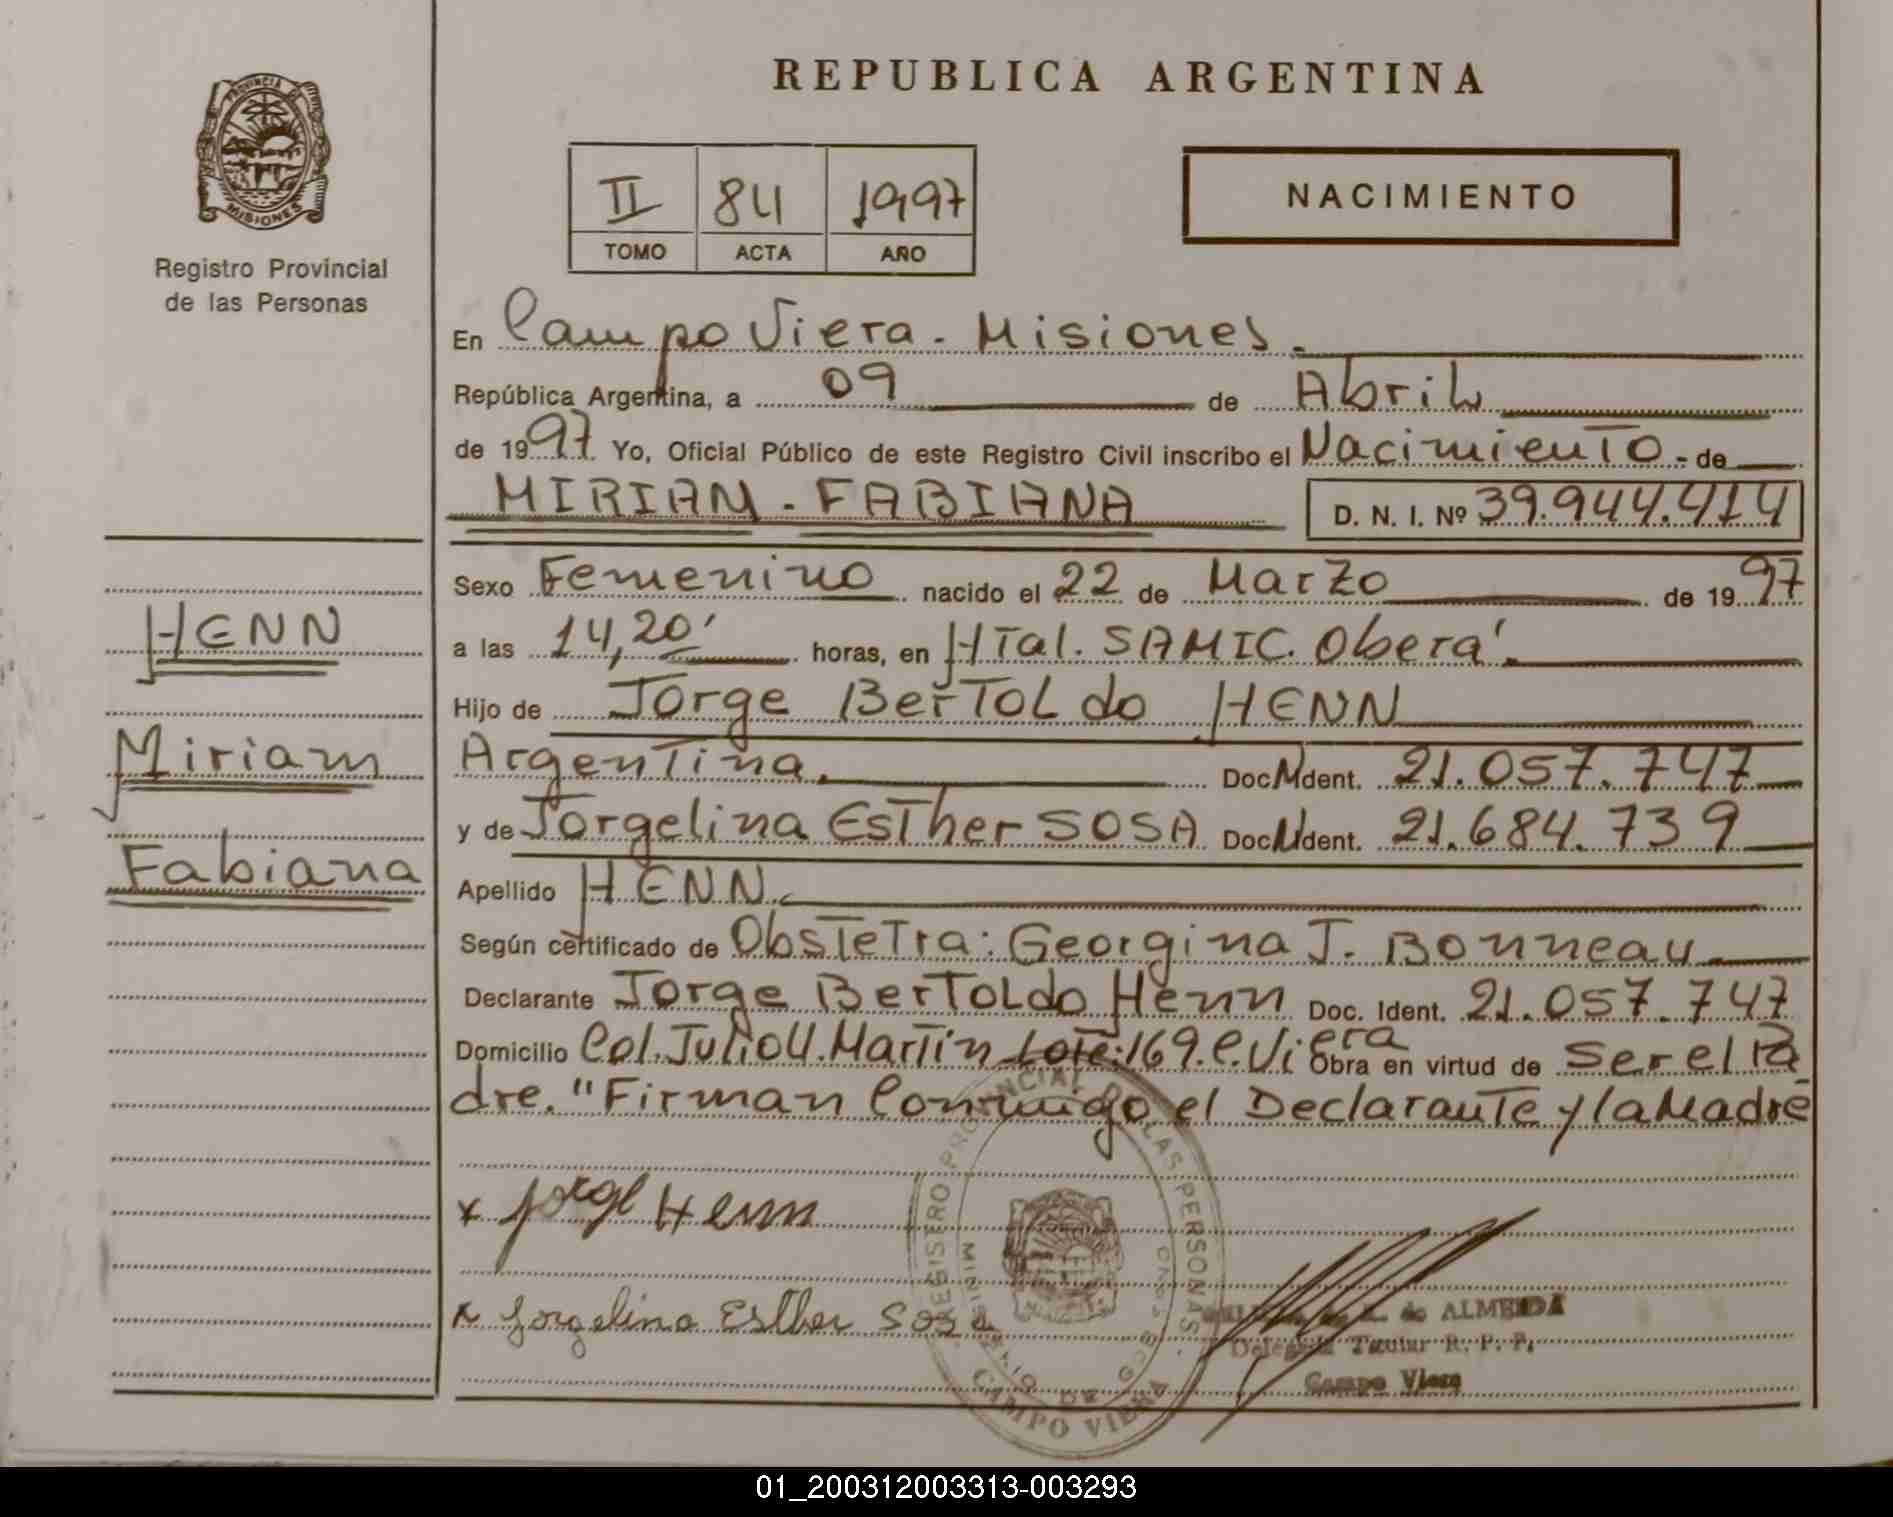 REPUBLICA ARGENTINA
PROVINCIA DE
MISIONES
Registro Provincial
de las Personas
II 84 1997
TOMO ACTA AÑO
NACIMIENTO
En Campo Viera - Misiones.
República Argentina, a 09 de Abril
de 1997 Yo, Oficial Público de este Registro Civil inscribo el Nacimiento - de
MIRIAM - FABIANA D. N. I. Nº 39.944.414
HENN
Miriam
Fabiana
Sexo Femenino nacido el 22 de Marzo de 1997
a las 14,20' horas, en HTal. SAMIC. Oberá.
Hijo de Jorge BerToldo HENN
Argentina. Doc. Ident. 21.057.747
y de Jorgelina Esther SOSA Doc. Ident. 21.684.739
Apellido HENN.
Según certificado de Obstetra: Georgina J. Bonneau
Declarante Jorge BerToldo Henn Doc. Ident. 21.057.747
Domicilio Col. Julio U. Martin Lote: 169. C. Viera Obra en virtud de ser el Pa
dre. "Firman Conmigo el Declarante y la Madre
x Jorge Henn
x Jorgelina Esther Sosa
REGISTRO PROVINCIAL DE LAS PERSONAS
CAMPO VIERA
de ALMEIDA
Delegada Titular R. P. P.
Campo Viera
01_200312003313-003293